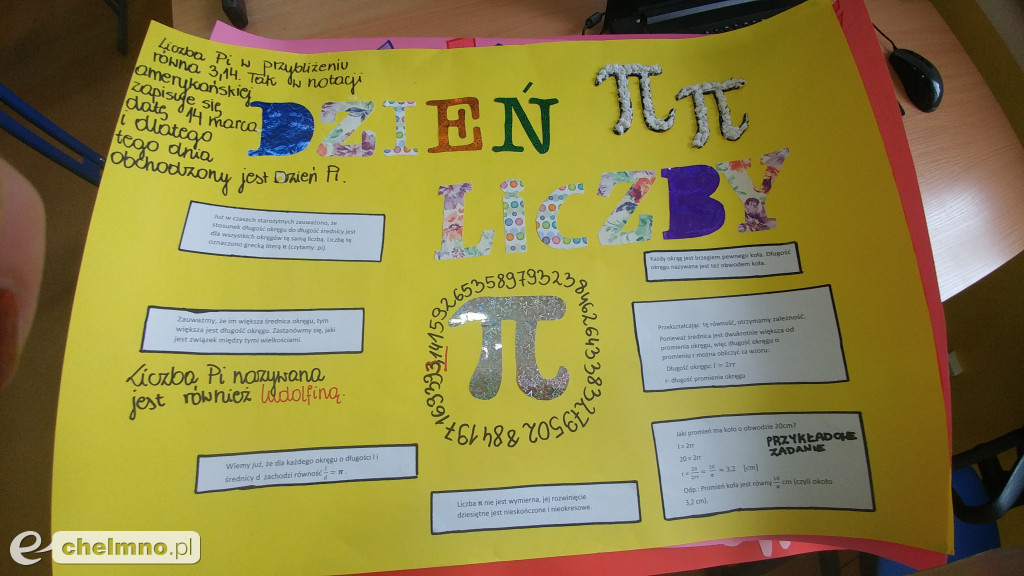 Liczba Pi w przybliżeniu
równa 3,14. Tak w notacji
amerykańskiej
zapisuje się
datę 14 marca
i dlatego
tego dnia
obchodzony jest Dzień Pi.
DZIEŃ
π π
LICZBY
Już w czasach starożytnych zauważono, że
stosunek długości okręgu do długości średnicy jest
dla wszystkich okręgów tą samą liczbą. Liczbę tę
oznaczono grecką literą π (czytamy: pi).
Każdy okrąg jest brzegiem pewnego koła. Długość
okręgu nazywana jest też obwodem koła.
Zauważmy, że im większa średnica okręgu, tym
większa jest długość okręgu. Zastanówmy się, jaki
jest związek między tymi wielkościami.
Przekształcając tę równość, otrzymamy zależność.
Ponieważ średnica jest dwukrotnie większa od
promienia okręgu, więc długość okręgu o
promieniu r można obliczyć za wzoru:
Długość okręgu: l = 2πr
r- długość promienia okręgu
Liczba Pi nazywana
jest również ludolfiną.
π
Jaki promień ma koło o obwodzie 20cm?
PRZYKŁADOWE
ZADANIE
l = 2πr
20 = 2πr
Odp.: Promień koła jest równy 10/π cm (czyli około
3,2 cm).
Wiemy już, że dla każdego okręgu o długości l i
średnicy d zachodzi równość l/d = π.
Liczba π nie jest wymierna, jej rozwinięcie
dziesiętne jest nieskończone i nieokresowe.
e-chelmno.pl